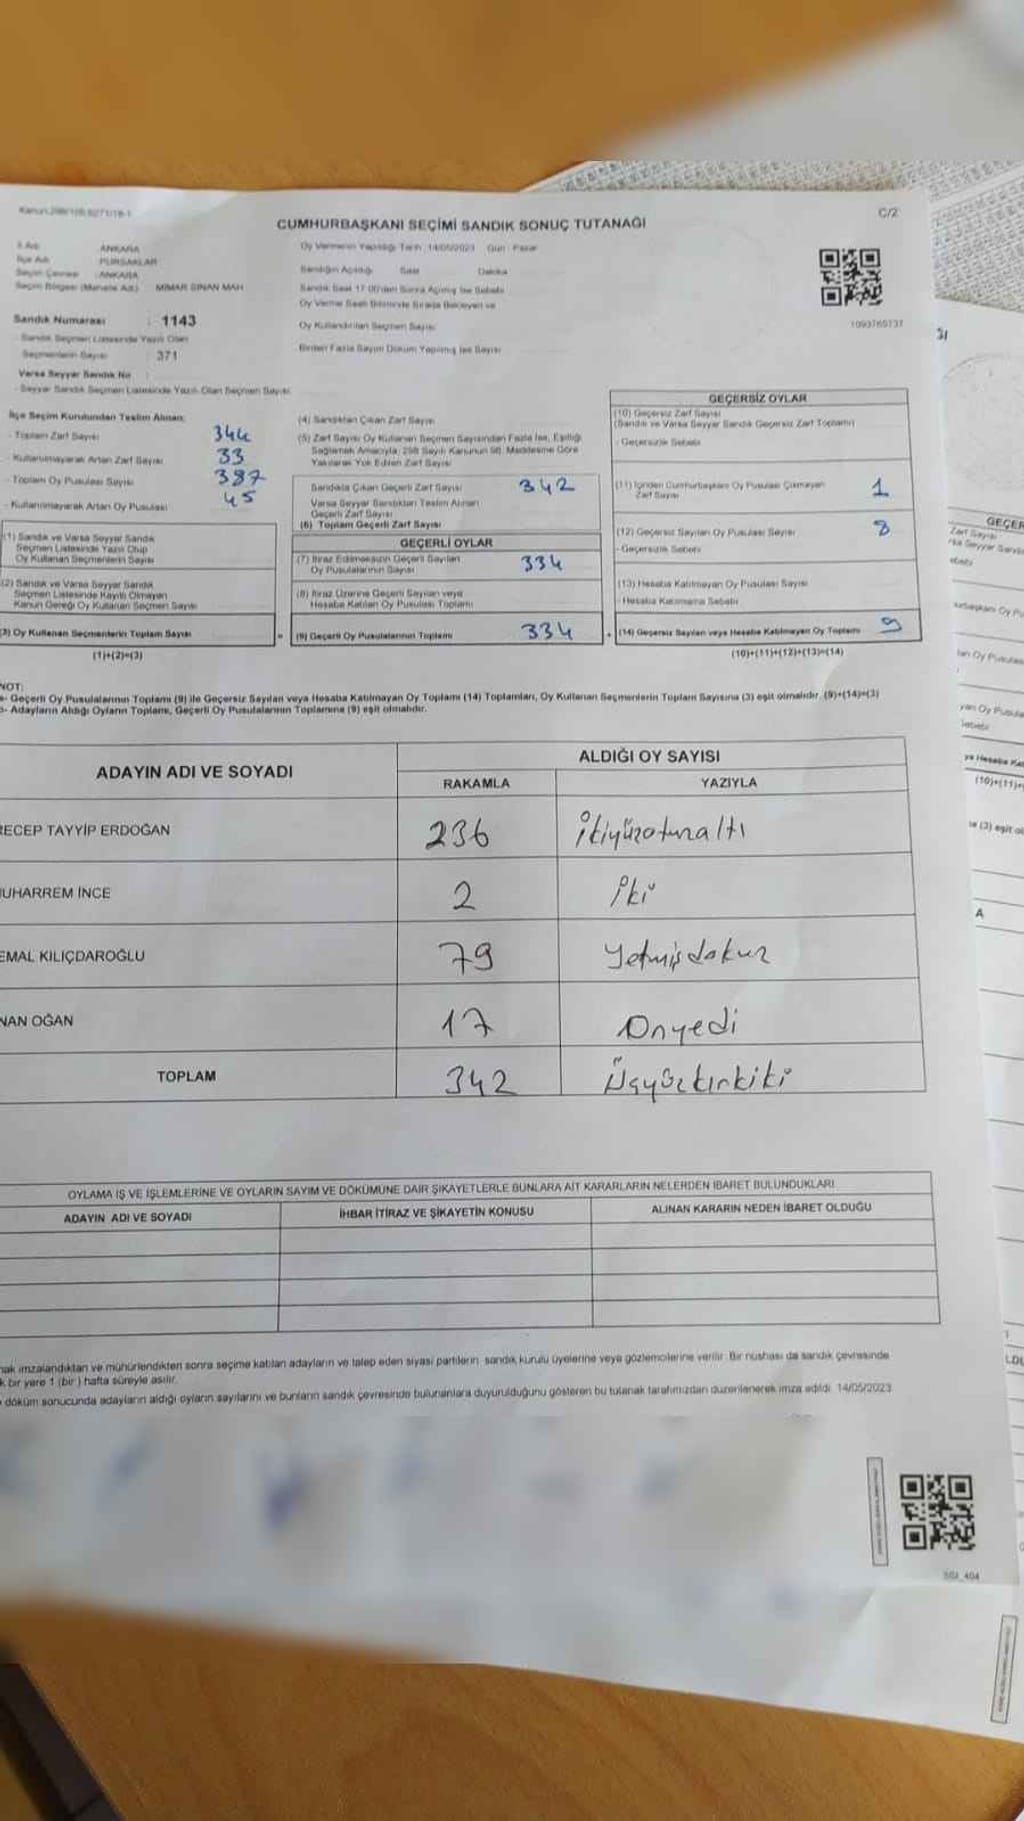 C/2
CUMHURBAŞKANI SEÇİMİ SANDIK SONUÇ TUTANAĞI
İl Adı ANKARA
İlçe Adı PURSAKLAR
Seçim Çevresi : ANKARA
Seçim Bölgesi (Mahalle Adı) MİMAR SİNAN MAH
Sandık Numarası : 1143
Sandık Seçmen Listesinde Yazılı Olan
Seçmenlerin Sayısı : 371
Varsa Seyyar Sandık No
- Seyyar Sandık Seçmen Listesinde Yazılı Olan Seçmen Sayısı:
Oy Vermenin Yapıldığı Tarih 14/05/2023 Gün : Pazar
Sandığın Açıldığı Saat Dakika
Sandık Saat 17:00'den Sonra Açılmış İse Sebebi
Oy Verme Saati Bitiminde Sırada Bekleyen ve
Oy Kullandırılan Seçmen Sayısı
Birden Fazla Sayım Döküm Yapılmış İse Sayısı
İlçe Seçim Kurulundan Teslim Alınan;
- Toplam Zarf Sayısı 344
- Kullanılmayarak Artan Zarf Sayısı 33
- Toplam Oy Pusulası Sayısı 387
- Kullanılmayarak Artan Oy Pusulası 45
(1) Sandık ve Varsa Seyyar Sandık
Seçmen Listesinde Yazılı Olup
Oy Kullanan Seçmenlerin Sayısı
(2) Sandık ve Varsa Seyyar Sandık
Seçmen Listesinde Kayıtlı Olmayan
Kanun Gereği Oy Kullanan Seçmen Sayısı
(3) Oy Kullanan Seçmenlerin Toplam Sayısı
(1)+(2)=(3)
(4) Sandıktan Çıkan Zarf Sayısı
(5) Zarf Sayısı Oy Kullanan Seçmen Sayısından Fazla İse, Eşitliği
Sağlamak Amacıyla, 298 Sayılı Kanunun 98. Maddesine Göre
Yakılarak Yok Edilen Zarf Sayısı
Sandıkta Çıkan Geçerli Zarf Sayısı 342
Varsa Seyyar Sandıktan Teslim Alınan
Geçerli Zarf Sayısı
(6) Toplam Geçerli Zarf Sayısı
GEÇERLİ OYLAR
(7) İtiraz Edilmeksizin Geçerli Sayılan
Oy Pusulalarının Sayısı 334
(8) İtiraz Üzerine Geçerli Sayılan veya
Hesaba Katılan Oy Pusulası Toplamı
(9) Geçerli Oy Pusulalarının Toplamı 334
GEÇERSİZ OYLAR
(10) Geçersiz Zarf Sayısı
(Sandık ve Varsa Seyyar Sandık Geçersiz Zarf Toplamı)
- Geçersizlik Sebebi
(11) İçinden Cumhurbaşkanı Oy Pusulası Çıkmayan
Zarf Sayısı 1
(12) Geçersiz Sayılan Oy Pusulası Sayısı 8
- Geçersizlik Sebebi
(13) Hesaba Katılmayan Oy Pusulası Sayısı
- Hesaba Katılmama Sebebi
(14) Geçersiz Sayılan veya Hesaba Katılmayan Oy Toplamı 9
(10)+(11)+(12)+(13)=(14)
NOT:
a- Geçerli Oy Pusulalarının Toplamı (9) ile Geçersiz Sayılan veya Hesaba Katılmayan Oy Toplamı (14) Toplamları, Oy Kullanan Seçmenlerin Toplam Sayısına (3) eşit olmalıdır. (9)+(14)=(3)
b- Adayların Aldığı Oyların Toplamı, Geçerli Oy Pusulalarının Toplamına (9) eşit olmalıdır.
ADAYIN ADI VE SOYADI
ALDIĞI OY SAYISI
RAKAMLA YAZIYLA
RECEP TAYYİP ERDOĞAN 236 İkiyüzotuzaltı
MUHARREM İNCE 2 İki
EMAL KILIÇDAROĞLU 79 Yetmişdokuz
NAN OĞAN 17 Onyedi
TOPLAM 342 Üçyüzkırkiki
OYLAMA İŞ VE İŞLEMLERİNE VE OYLARIN SAYIM VE DÖKÜMÜNE DAİR ŞİKAYETLERLE BUNLARA AİT KARARLARIN NELERDEN İBARET BULUNDUKLARI
ADAYIN ADI VE SOYADI İHBAR İTİRAZ VE ŞİKAYETİN KONUSU ALINAN KARARIN NEDEN İBARET OLDUĞU
nak imzalandıktan ve mühürlendikten sonra seçime katılan adayların ve talep eden siyasi partilerin sandık kurulu üyelerine veya gözlemcilerine verilir. Bir nüshası da sandık çevresinde
k bir yere 1 (bir) hafta süreyle asılır.
döküm sonucunda adayların aldığı oyların sayılarını ve bunların sandık çevresinde bulunanlara duyurulduğunu gösteren bu tutanak tarafımızdan düzenlenerek imza edildi. 14/05/2023